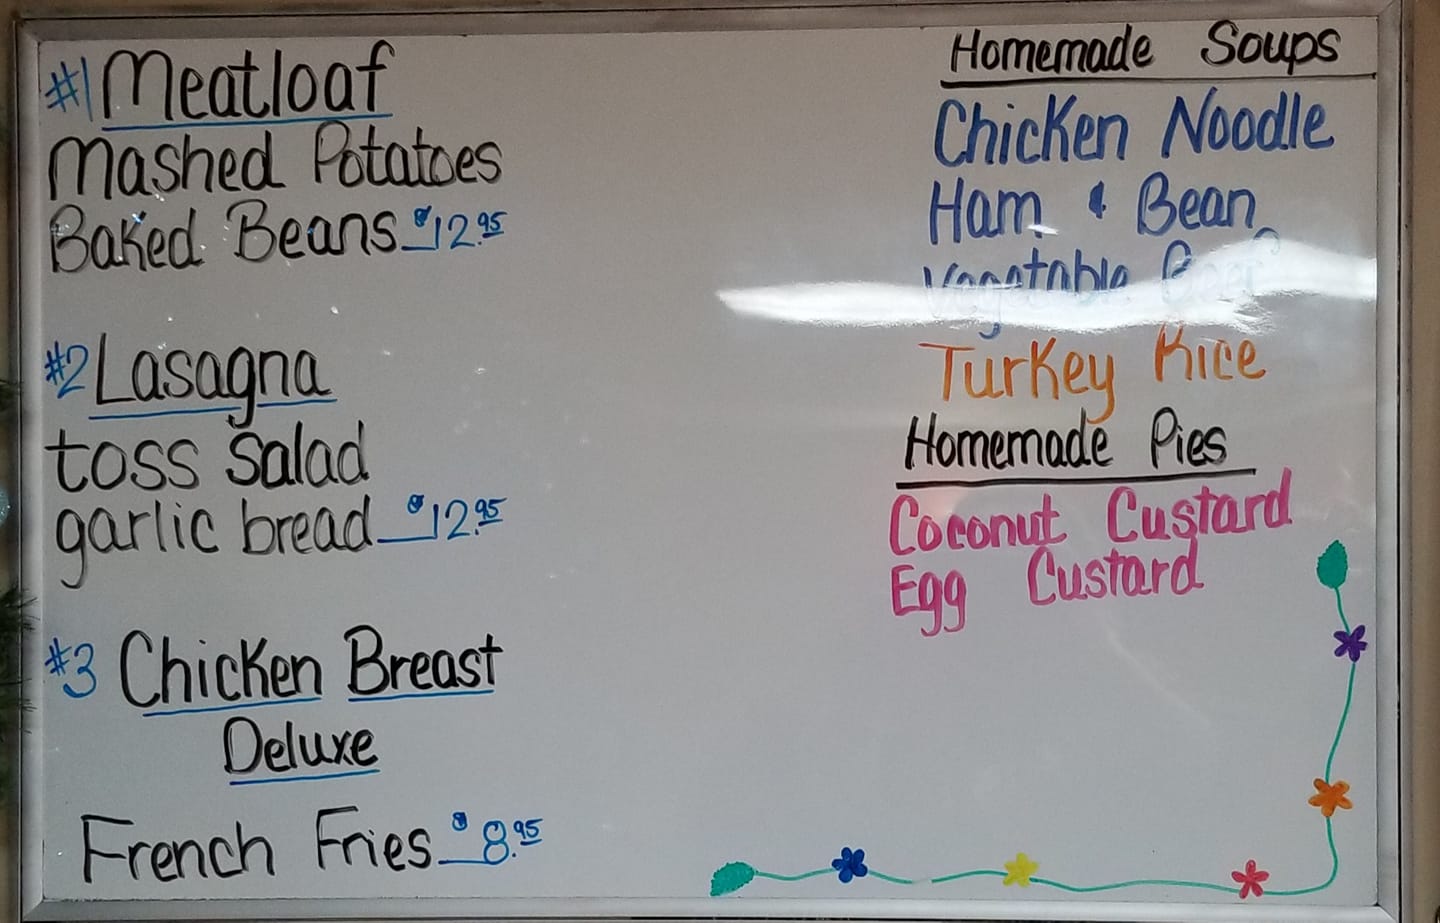 #1 Meatloaf
Mashed Potatoes
Baked Beans $12.95
#2 Lasagna
toss Salad
garlic bread $12.95
#3 Chicken Breast
Deluxe
French Fries $8.95
Homemade Soups
Chicken Noodle
Ham & Bean
Vegetable Beef
Turkey Rice
Homemade Pies
Coconut Custard
Egg Custard